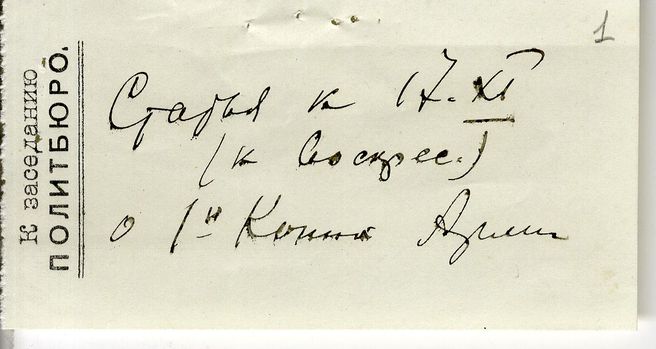 К заседанию
ПОЛИТБЮРО.
1
Статья к 17.XI
(к Воскрес.)
о 1й Конна Армии